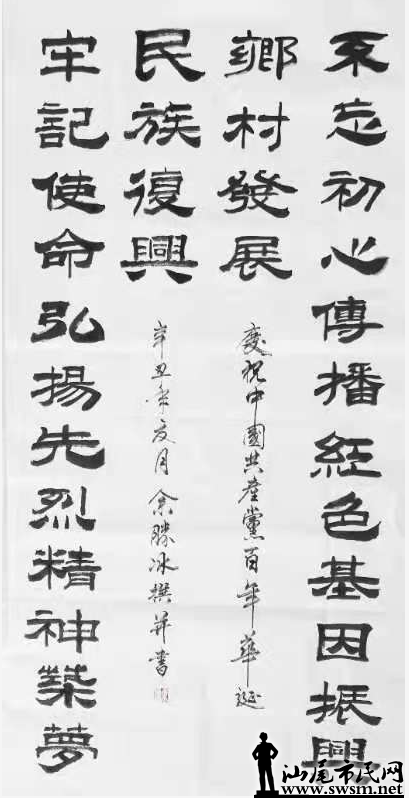 不忘初心傳播紅色基因振興
鄉村發展
慶祝中國共產黨百年華誕
牢記使命弘揚先烈精神築夢
民族復興
辛丑夏月余勝冰撰并書
汕尾市民网
www.swsm.net